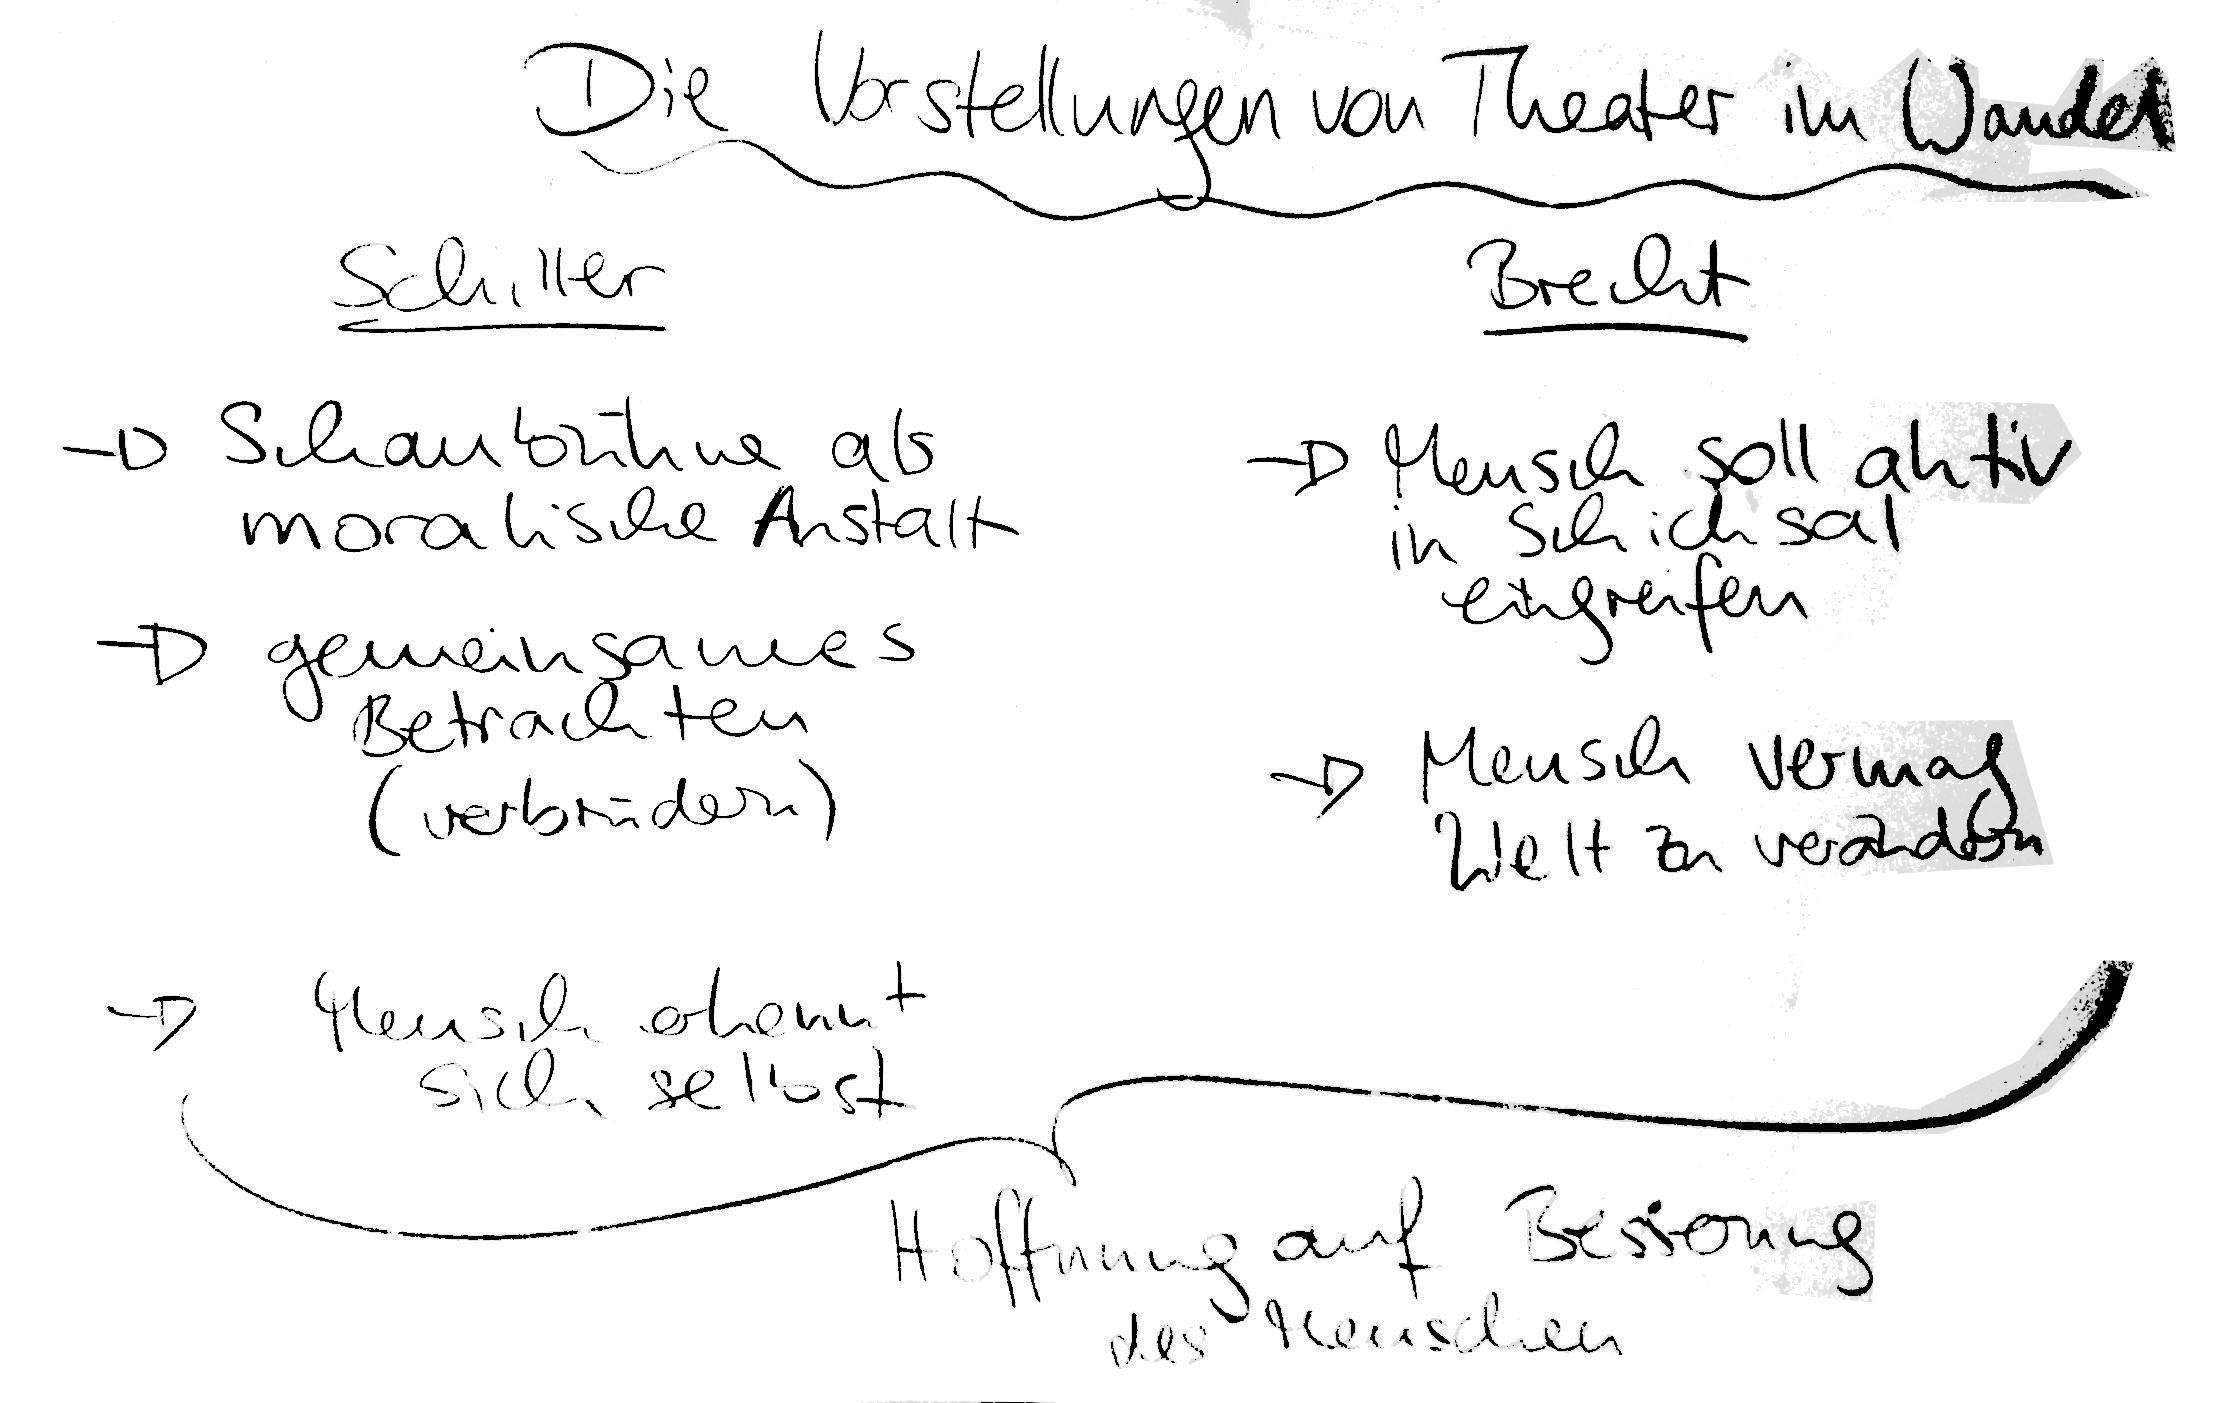 Die Vorstellungen von Theater im Wandel
Schiller
→ Schaubühne als
moralische Anstalt
→ gemeinsames
Betrachten
(verbrüdern)
→ Mensch erkennt
sich selbst
Brecht
→ Mensch soll aktiv
in Schicksal
eingreifen
→ Mensch vermag
Welt zu verändern
Hoffnung auf Besserung
des Menschen